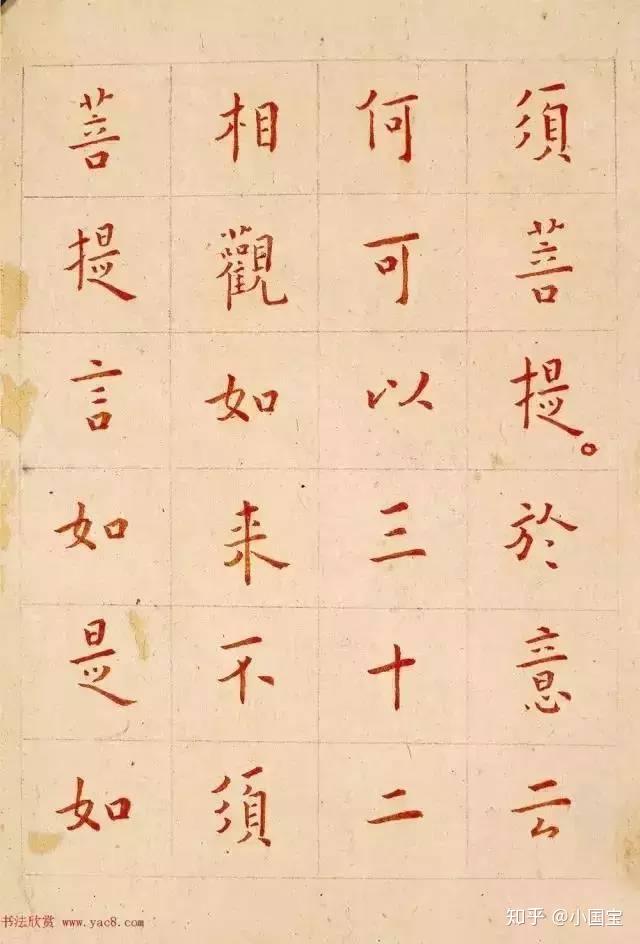 須菩提。於意云
何可以三十二
相觀如来不須
菩提言如是如
书法欣赏 www.yac8.com
知乎 @小国宝